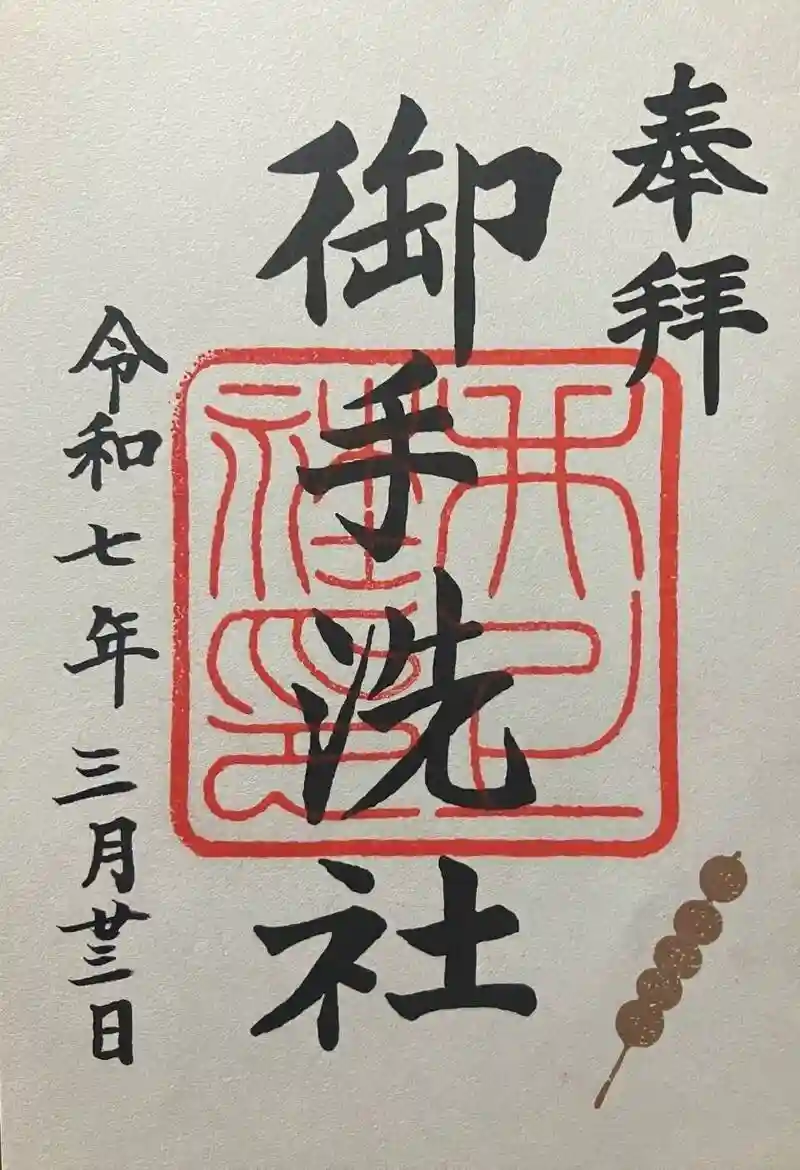 奉拝
御手洗社
令和七年三月廿三日